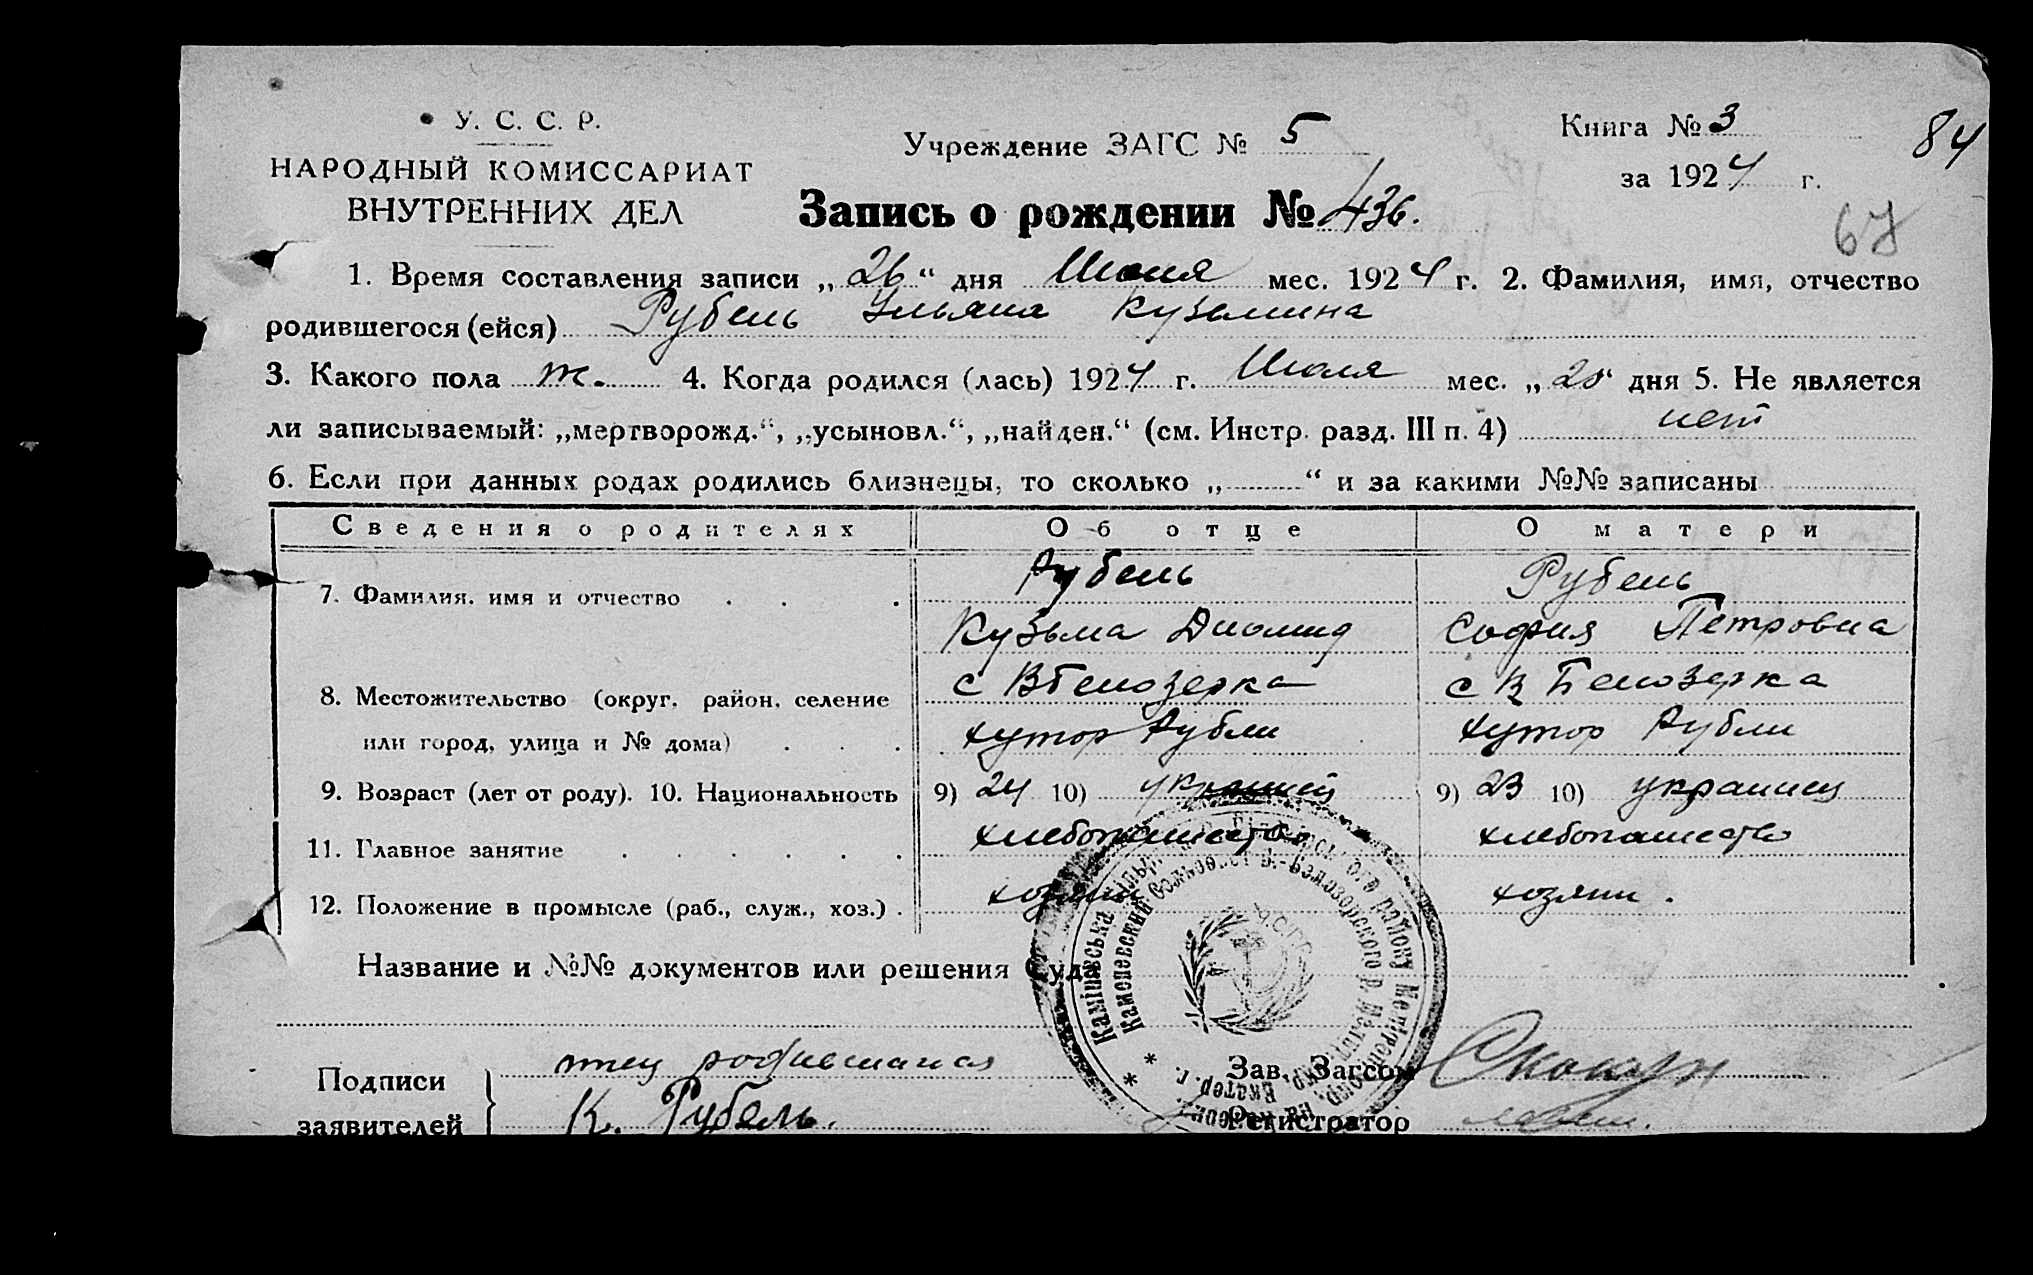 У. С. С. Р.
НАРОДНЫЙ КОМИССАРИАТ
ВНУТРЕННИХ ДЕЛ
Учреждение ЗАГС № 5
Книга № 3
за 1924 г.
84
67
Запись о рождении № 436.
1. Время составления записи „26“ дня Июля мес. 1924 г. 2. Фамилия, имя, отчество
родившегося (ейся) Рубель Ульяна Кузьмина
3. Какого пола ж. 4. Когда родился (лась) 1924 г. Июля мес. „20“ дня 5. Не является
ли записываемый: „мертворожд.“, „усыновл.“, „найден.“ (см. Инстр. разд. III п. 4) нет
6. Если при данных родах родились близнецы, то сколько „ “ и за какими №№ записаны
Сведения о родителях Об отце О матери
7. Фамилия, имя и отчество Рубель Рубель
Кузьма Диомид София Петровна
8. Местожительство (округ, район, селение с В Белозерка с В Белозерка
или город, улица и № дома) хутор Рубли хутор Рубли
9. Возраст (лет от роду). 10. Национальность 9) 24 10) украинец 9) 23 10) украинец
11. Главное занятие хлебопашество хлебопашество
12. Положение в промысле (раб., служ., хоз.) хозяин хозяин.
Название и №№ документов или решения Суда
Подписи
заявителей
отец родившагося
К. Рубель.
Зав. Загсом
Регистратор
Камінська
Каменевский